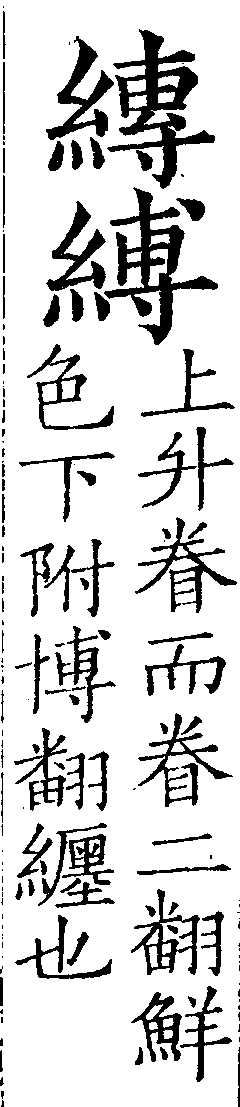 縳縛
上升眷而眷二翻鮮
色下附博翻纒也